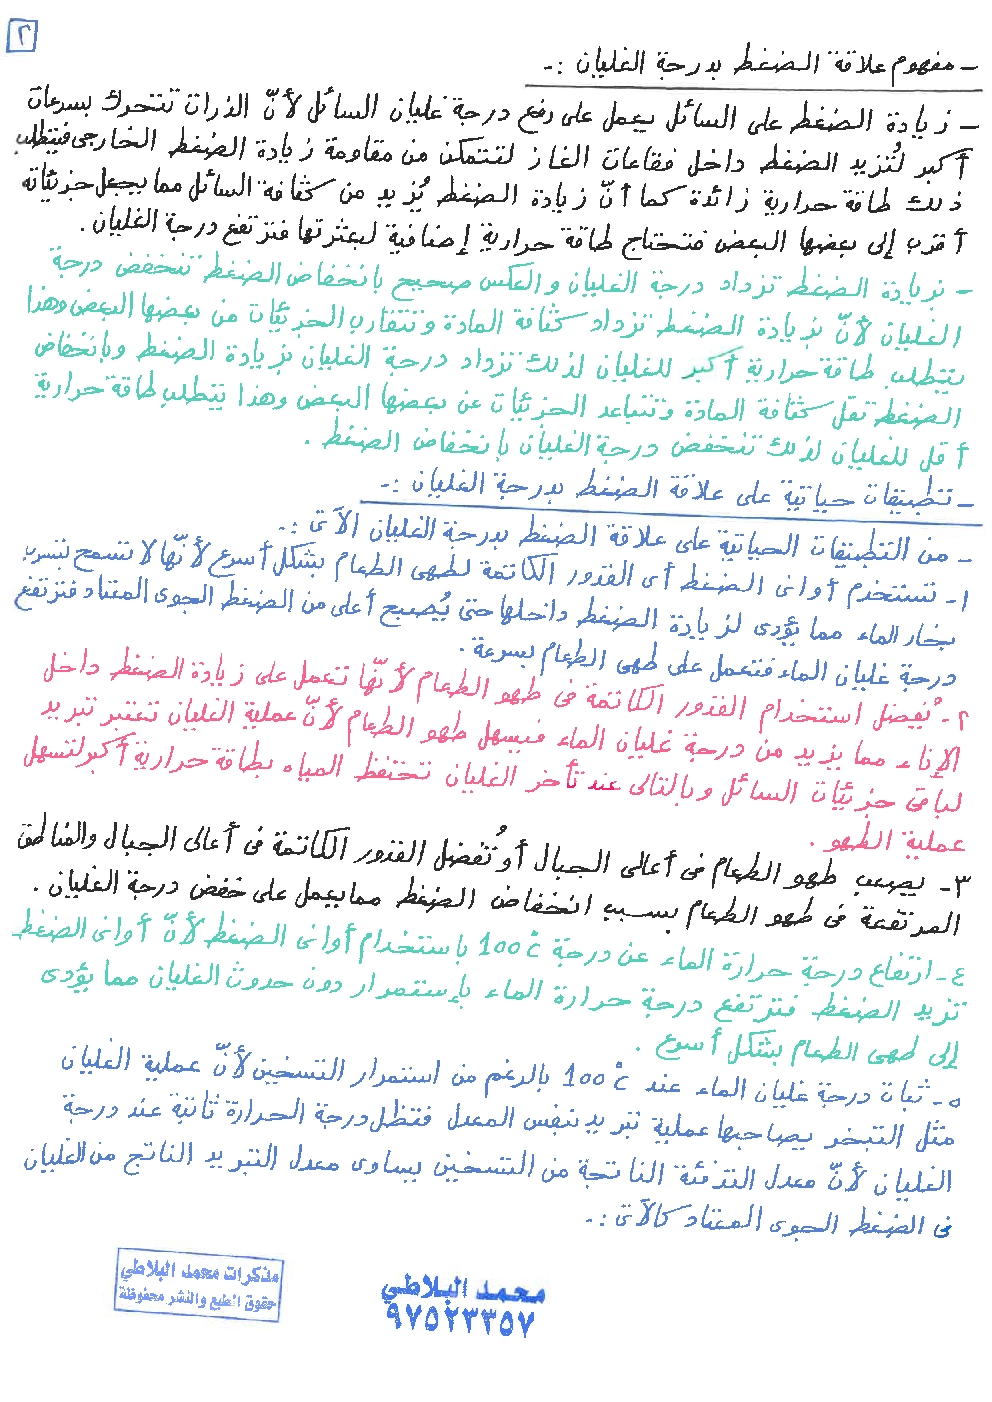 ٢
- مفهوم علاقة الضغط بدرجة الغليان :-
- زيادة الضغط على السائل يعمل على رفع درجة غليان السائل لأنّ الذرات تتحرك بسرعات
أكبر لتُزيد الضغط داخل فقاعات الغاز لتتمكن من مقاومة زيادة الضغط الخارجى فيتطلب
ذلك طاقة حرارية زائدة كما أنّ زيادة الضغط يُزيد من كثافة السائل مما يجعل جزيئاته
أقرب إلى بعضها البعض فتحتاج طاقة حرارية إضافية لبعثرتها فترتفع درجة الغليان .
- بزيادة الضغط تزداد درجة الغليان والعكس صحيح بانخفاض الضغط تنخفض درجة
الغليان لأنّ بزيادة الضغط تزداد كثافة المادة وتتقارب الجزيئات من بعضها البعض وهذا
يتطلب طاقة حرارية أكبر للغليان لذلك تزداد درجة الغليان بزيادة الضغط وبإنخفاض
الضغط تقل كثافة المادة وتتباعد الجزيئات عن بعضها البعض وهذا يتطلب طاقة حرارية
أقل للغليان لذلك تنخفض درجة الغليان بإنخفاض الضغط .
- تطبيقات حياتية على علاقة الضغط بدرجة الغليان :-
- من التطبيقات الحياتية على علاقة الضغط بدرجة الغليان الآتى :-
١- تستخدم أوانى الضغط أى القدور الكاتمة لطهى الطعام بشكل أسرع لأنّها لا تسمح بتسرب
بخار الماء مما يؤدى لزيادة الضغط داخلها حتى يُصبح أعلى من الضغط الجوى المعتاد فترتفع
درجة غليان الماء فتعمل على طهى الطعام بسرعة .
٢- يُفضل استخدام القدور الكاتمة فى طهو الطعام لأنّها تعمل على زيادة الضغط داخل
الإناء مما يزيد من درجة غليان الماء فيسهل طهو الطعام لأنّ عملية الغليان تعتبر تبريد
لباقى جزيئات السائل وبالتالى عند تأخر الغليان تحتفظ المياه بطاقة حرارية أكبر لتسهل
عملية الطهو .
٣- يصعب طهو الطعام فى أعالى الجبال أو تُفضل القدور الكاتمة فى أعالى الجبال والمناطق
المرتفعة فى طهو الطعام بسبب انخفاض الضغط مما يعمل على خفض درجة الغليان .
٤- ارتفاع درجة حرارة الماء عن درجة 100°C باستخدام أوانى الضغط لأنّ أوانى الضغط
تزيد الضغط فترتفع درجة حرارة الماء بإستمرار دون حدوث الغليان مما يؤدى
إلى طهى الطعام بشكل أسرع .
٥- ثبات درجة غليان الماء عند 100°C بالرغم من استمرار التسخين لأنّ عملية الغليان
مثل التبخر يصاحبها عملية تبريد بنفس المعدل فتظل درجة الحرارة ثابتة عند درجة
الغليان لأنّ معدل التدفئة الناتجة من التسخين يساوى معدل التبريد الناتج من الغليان
فى الضغط الجوى المعتاد كالآتى :-
مذكرات محمد البلاطي
حقوق الطبع والنشر محفوظة
محمد البلاطي
٩٧٥٢٣٣٥٧